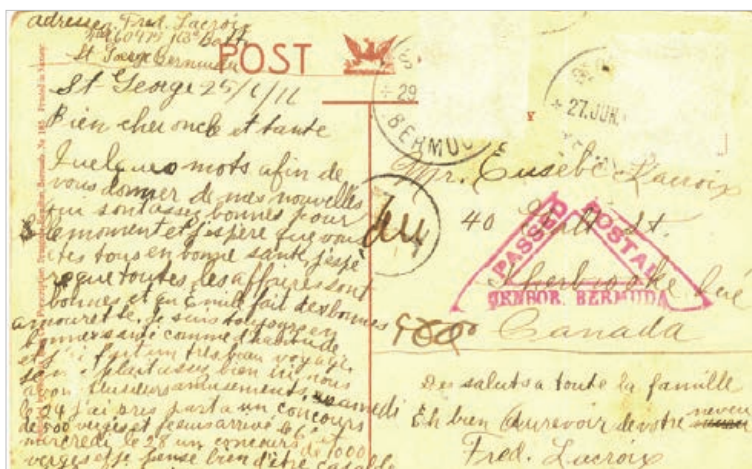 adresse Fred. Lacroix
St George Bermuda
St-George 25/6/16
Bien cher oncle et tante
Quelques mots afin de
vous donner de mes nouvelles
qui sont asses bonnes pour
le moment et j'espère que vous
êtes tous en bonne santé, j'espè
re que toutes les affaires sont
bonnes et qu'Emile fait des bonnes
amourette. Je suis toujours en
bonne santé comme d'habitude
et j'ai fait un très bon voyage.
plait asses bien ici nous
avons plusieurs amusements samedi
le 24 j'ai pris part a un concours
de 500 verges et je suis arrivé le
mercredi le 28 un concours de 1000
verges et je pense bien d'être capable
POST
29
BERMU
27.JUN.
Mr. Eusebe Lacroix
40 Galt St.
Sherbrooke Que
Canada
PASSED
POSTAL
CENSOR. BERMUDA
Des saluts a toute la famille
Eh bien Aurevoir de votre neveu
Fred. Lacroix